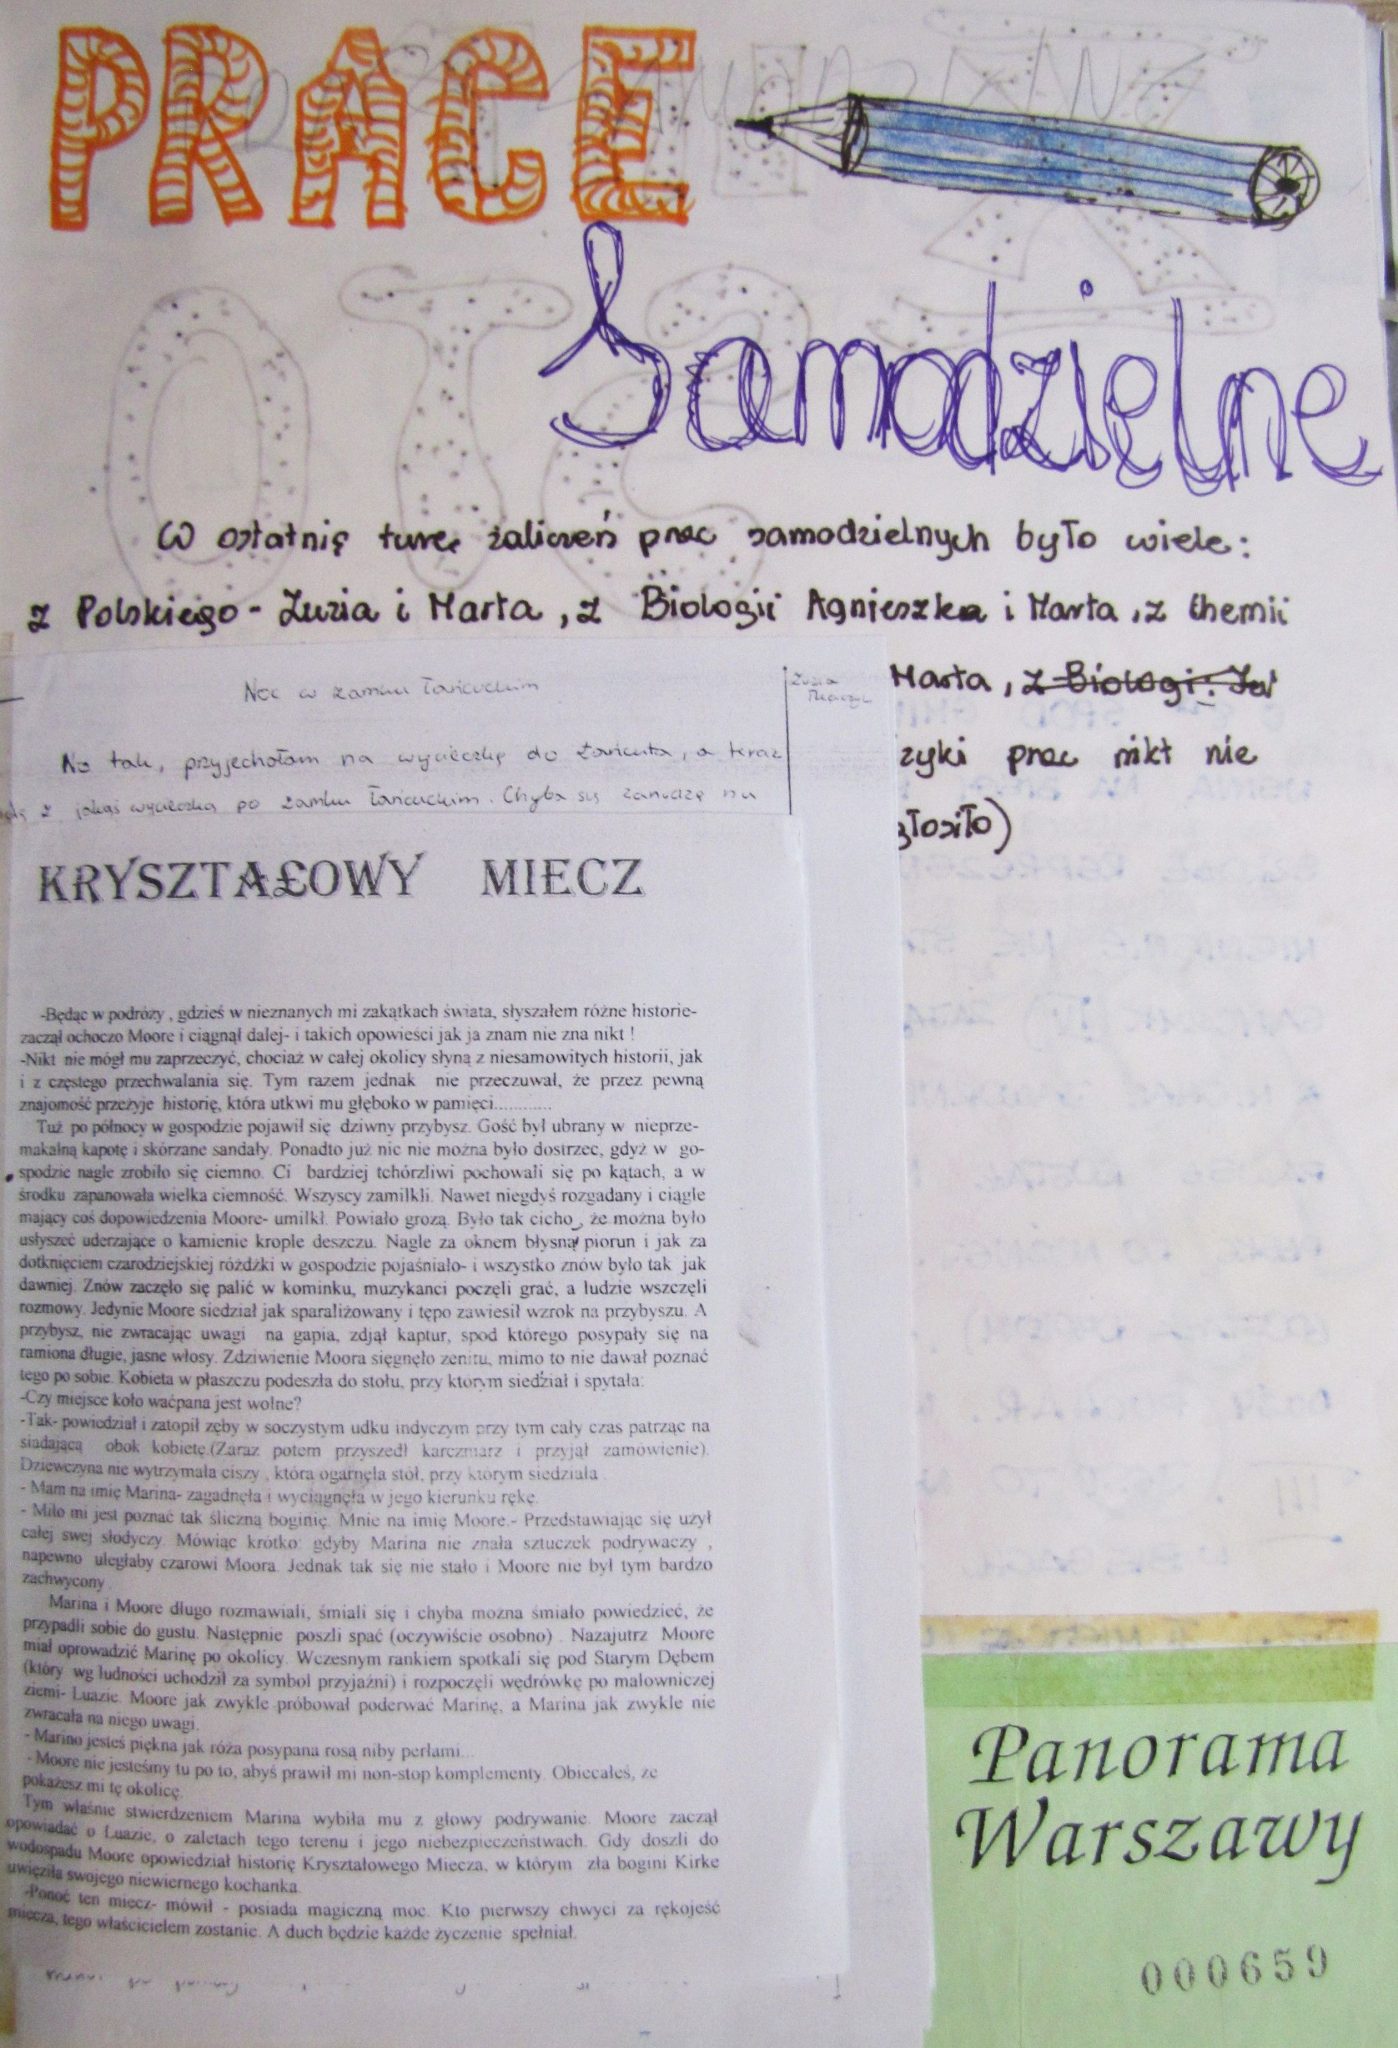 PRACE
Samodzielne
W ostatnię turę zaliczeń prac samodzielnych było wiele:
z Polskiego - Zuzia i Marta, z Biologii Agnieszka i Marta, z chemii
Marta, z Biologi: Ja
zyki prac nikt nie
głosiło)
Noc w zamku łańcuckim
Zuzia
No tak, przyjechałam na wycieczkę do Łańcuta, a teraz
z jakąś wycieczką po zamku łańcuckim. Chyba się zanudzę na
KRYSZTAŁOWY MIECZ
-Będąc w podróży , gdzieś w nieznanych mi zakątkach świata, słyszałem różne historie-
zaczął ochoczo Moore i ciągnął dalej- i takich opowieści jak ja znam nie zna nikt !
-Nikt nie mógł mu zaprzeczyć, chociaż w całej okolicy słyną z niesamowitych historii, jak
i z częstego przechwalania się. Tym razem jednak nie przeczuwał, że przez pewną
znajomość przeżyje historię, która utkwi mu głęboko w pamięci............
Tuż po północy w gospodzie pojawił się dziwny przybysz. Gość był ubrany w nieprze-
makalną kapotę i skórzane sandały. Ponadto już nic nie można było dostrzec, gdyż w go-
spodzie nagle zrobiło się ciemno. Ci bardziej tchórzliwi pochowali się po kątach, a w
środku zapanowała wielka ciemność. Wszyscy zamilkli. Nawet niegdyś rozgadany i ciągle
mający coś dopowiedzenia Moore- umilkł. Powiało grozą. Było tak cicho , że można było
usłyszeć uderzające o kamienie krople deszczu. Nagle za oknem błysnął piorun i jak za
dotknięciem czarodziejskiej różdżki w gospodzie pojaśniało- i wszystko znów było tak jak
dawniej. Znów zaczęło się palić w kominku, muzykanci poczęli grać, a ludzie wszczęli
rozmowy. Jedynie Moore siedział jak sparaliżowany i tępo zawiesił wzrok na przybyszu. A
przybysz, nie zwracając uwagi na gapia, zdjął kaptur, spod którego posypały się na
ramiona długie, jasne włosy. Zdziwienie Moora sięgnęło zenitu, mimo to nie dawał poznać
tego po sobie. Kobieta w płaszczu podeszła do stołu, przy którym siedział i spytała:
-Czy miejsce koło waćpana jest wolne?
-Tak- powiedział i zatopił zęby w soczystym udku indyczym przy tym cały czas patrząc na
siadającą obok kobietę.(Zaraz potem przyszedł karczmarz i przyjął zamówienie).
Dziewczyna nie wytrzymała ciszy , która ogarnęła stół, przy którym siedziała .
- Mam na imię Marina- zagadnęła i wyciągnęła w jego kierunku rękę.
- Miło mi jest poznać tak śliczną boginię. Mnie na imię Moore.- Przedstawiając się użył
całej swej słodyczy. Mówiąc krótko: gdyby Marina nie znała sztuczek podrywaczy ,
napewno uległaby czarowi Moora. Jednak tak się nie stało i Moore nie był tym bardzo
zachwycony .
Marina i Moore długo rozmawiali, śmiali się i chyba można śmiało powiedzieć, że
przypadli sobie do gustu. Następnie poszli spać (oczywiście osobno) . Nazajutrz Moore
miał oprowadzić Marinę po okolicy. Wczesnym rankiem spotkali się pod Starym Dębem
(który wg ludności uchodził za symbol przyjaźni) i rozpoczęli wędrówkę po malowniczej
ziemi- Luazie. Moore jak zwykle próbował poderwać Marinę, a Marina jak zwykle nie
zwracała na niego uwagi.
- Marino jesteś piękna jak róża posypana rosą niby perłami...
- Moore nie jesteśmy tu po to, abyś prawił mi non-stop komplementy. Obiecałeś, że
pokażesz mi tę okolicę.
Tym właśnie stwierdzeniem Marina wybiła mu z głowy podrywanie. Moore zaczął
opowiadać o Luazie, o zaletach tego terenu i jego niebezpieczeństwach. Gdy doszli do
wodospadu Moore opowiedział historię Kryształowego Miecza, w którym zła bogini Kirke
uwięziła swojego niewiernego kochanka.
-Ponoć ten miecz- mówił - posiada magiczną moc. Kto pierwszy chwyci za rękojeść
miecza, tego właścicielem zostanie. A duch będzie każde życzenie spełniał.
Panorama
Warszawy
000659